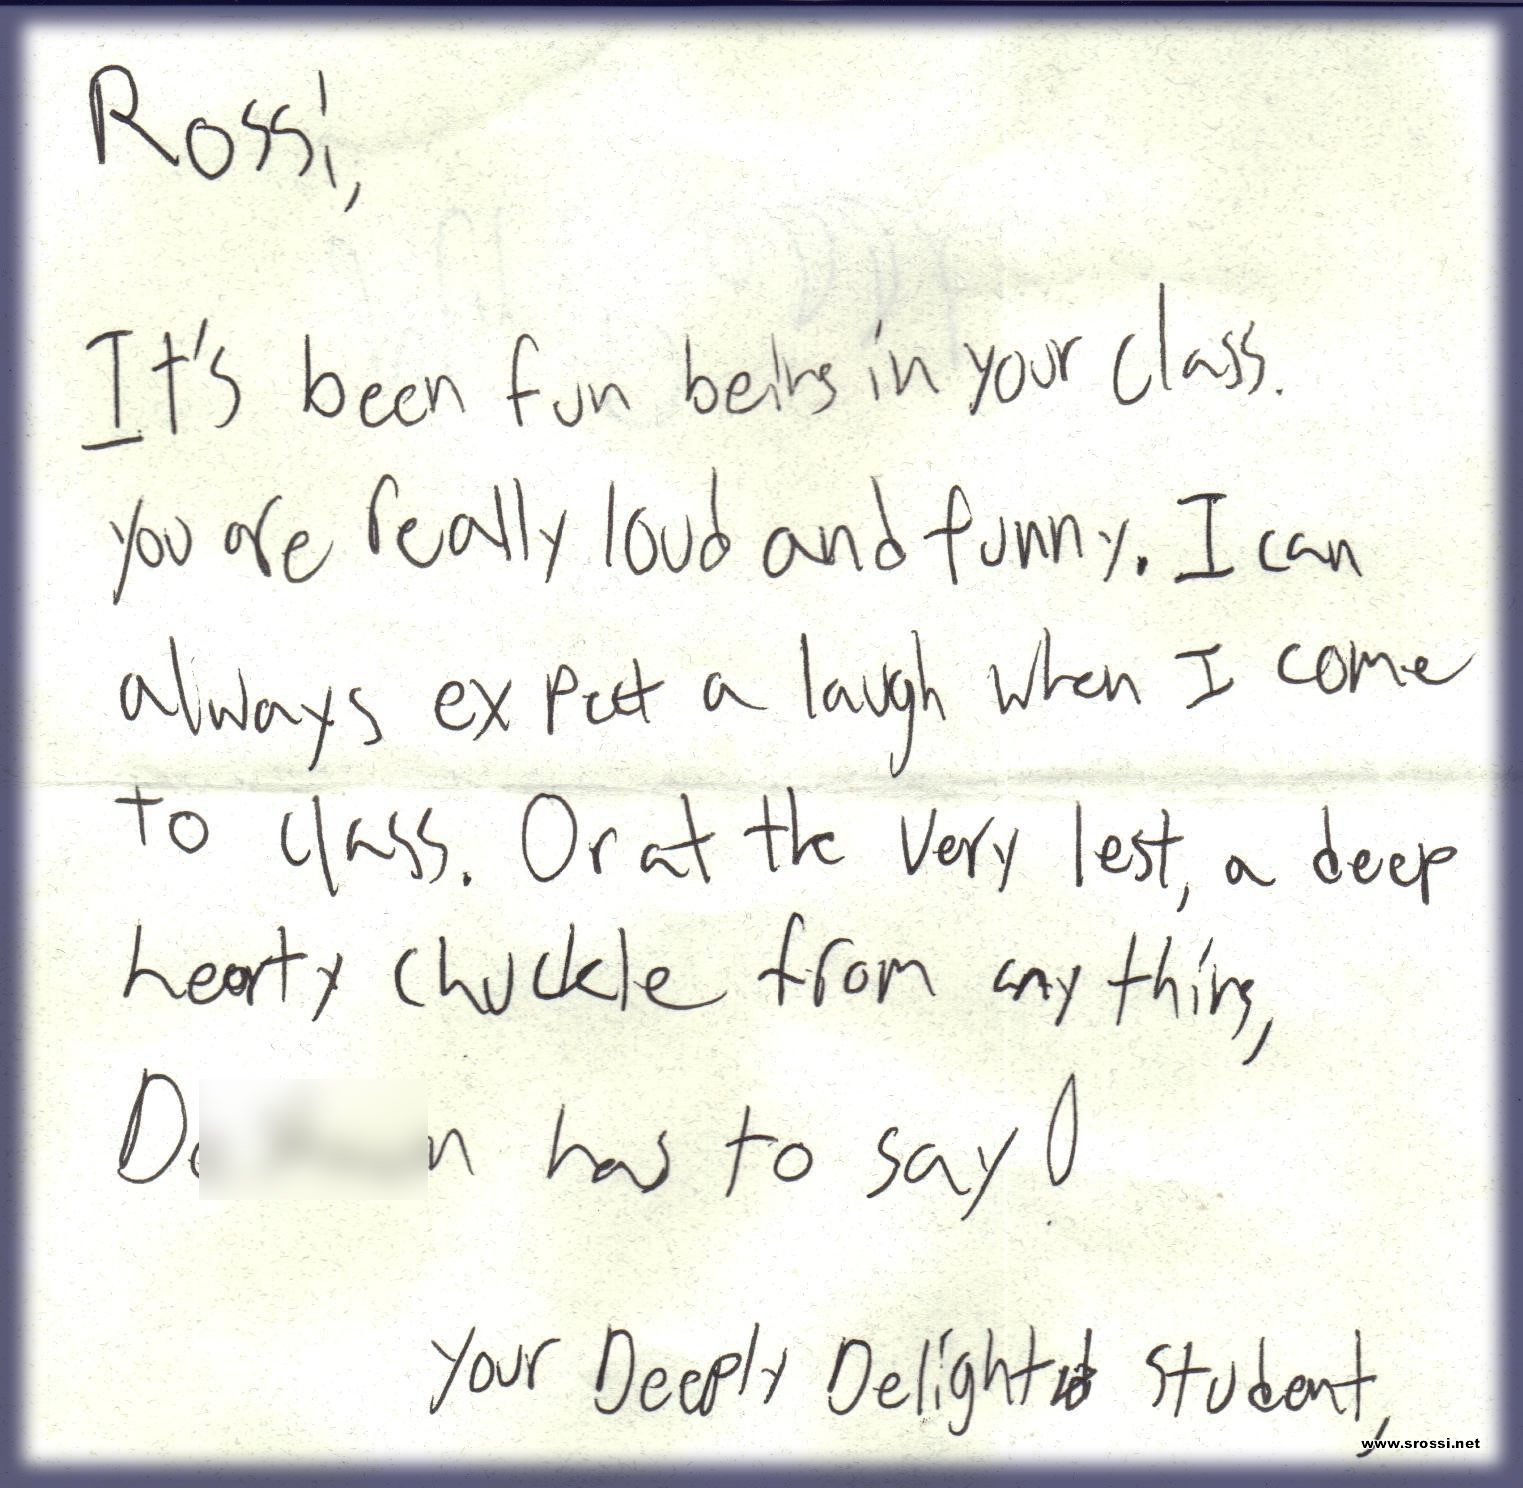 Rossi,
It's been fun being in your class.
you are really loud and funny. I can
always expect a laugh when I come
to class. Or at the very lest, a deep
hearty chuckle from anything,
has to say!
your Deeply Delighted student,
www.srossi.net